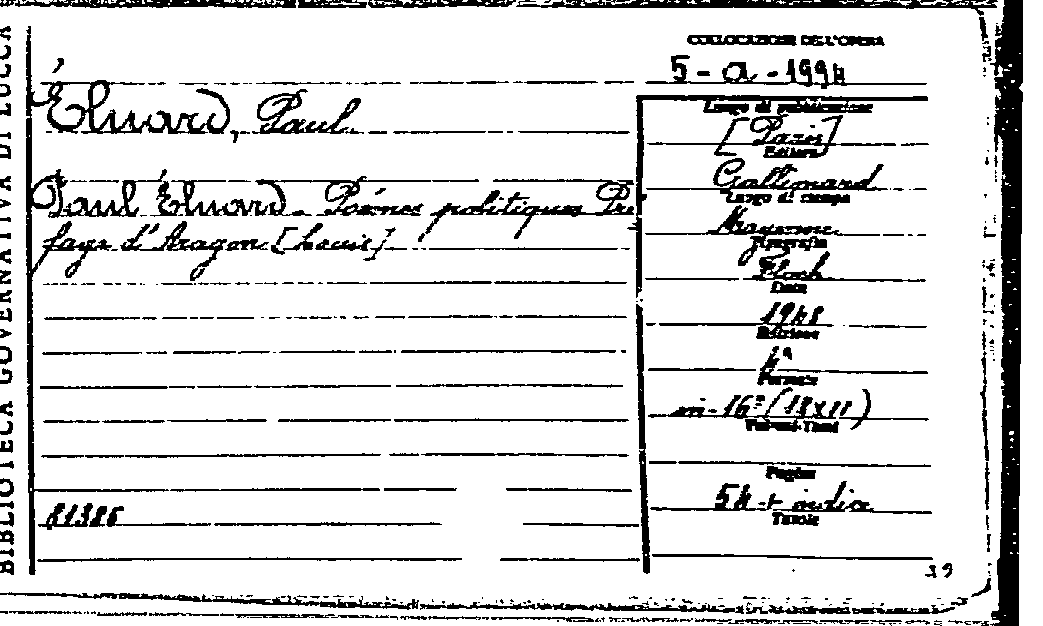 BIBLIOTECA GOVERNATIVA DI LUCCA
COLLOCAZIONE DELL'OPERA
5-a-1994
Éluard, Paul
Luogo di pubblicazione
[Paris]
Editore
Paul Éluard. Poémes politiques Pre
Gallimard
Luogo di stampa
faye d'Aragon [Louis]
Mayenne
Tipografia
Floch
Data
1948
Edizione
4ª
Formato
in-16º (18x11)
Volumi-Tomi
Pagine
54 + indice
Tavole
81386